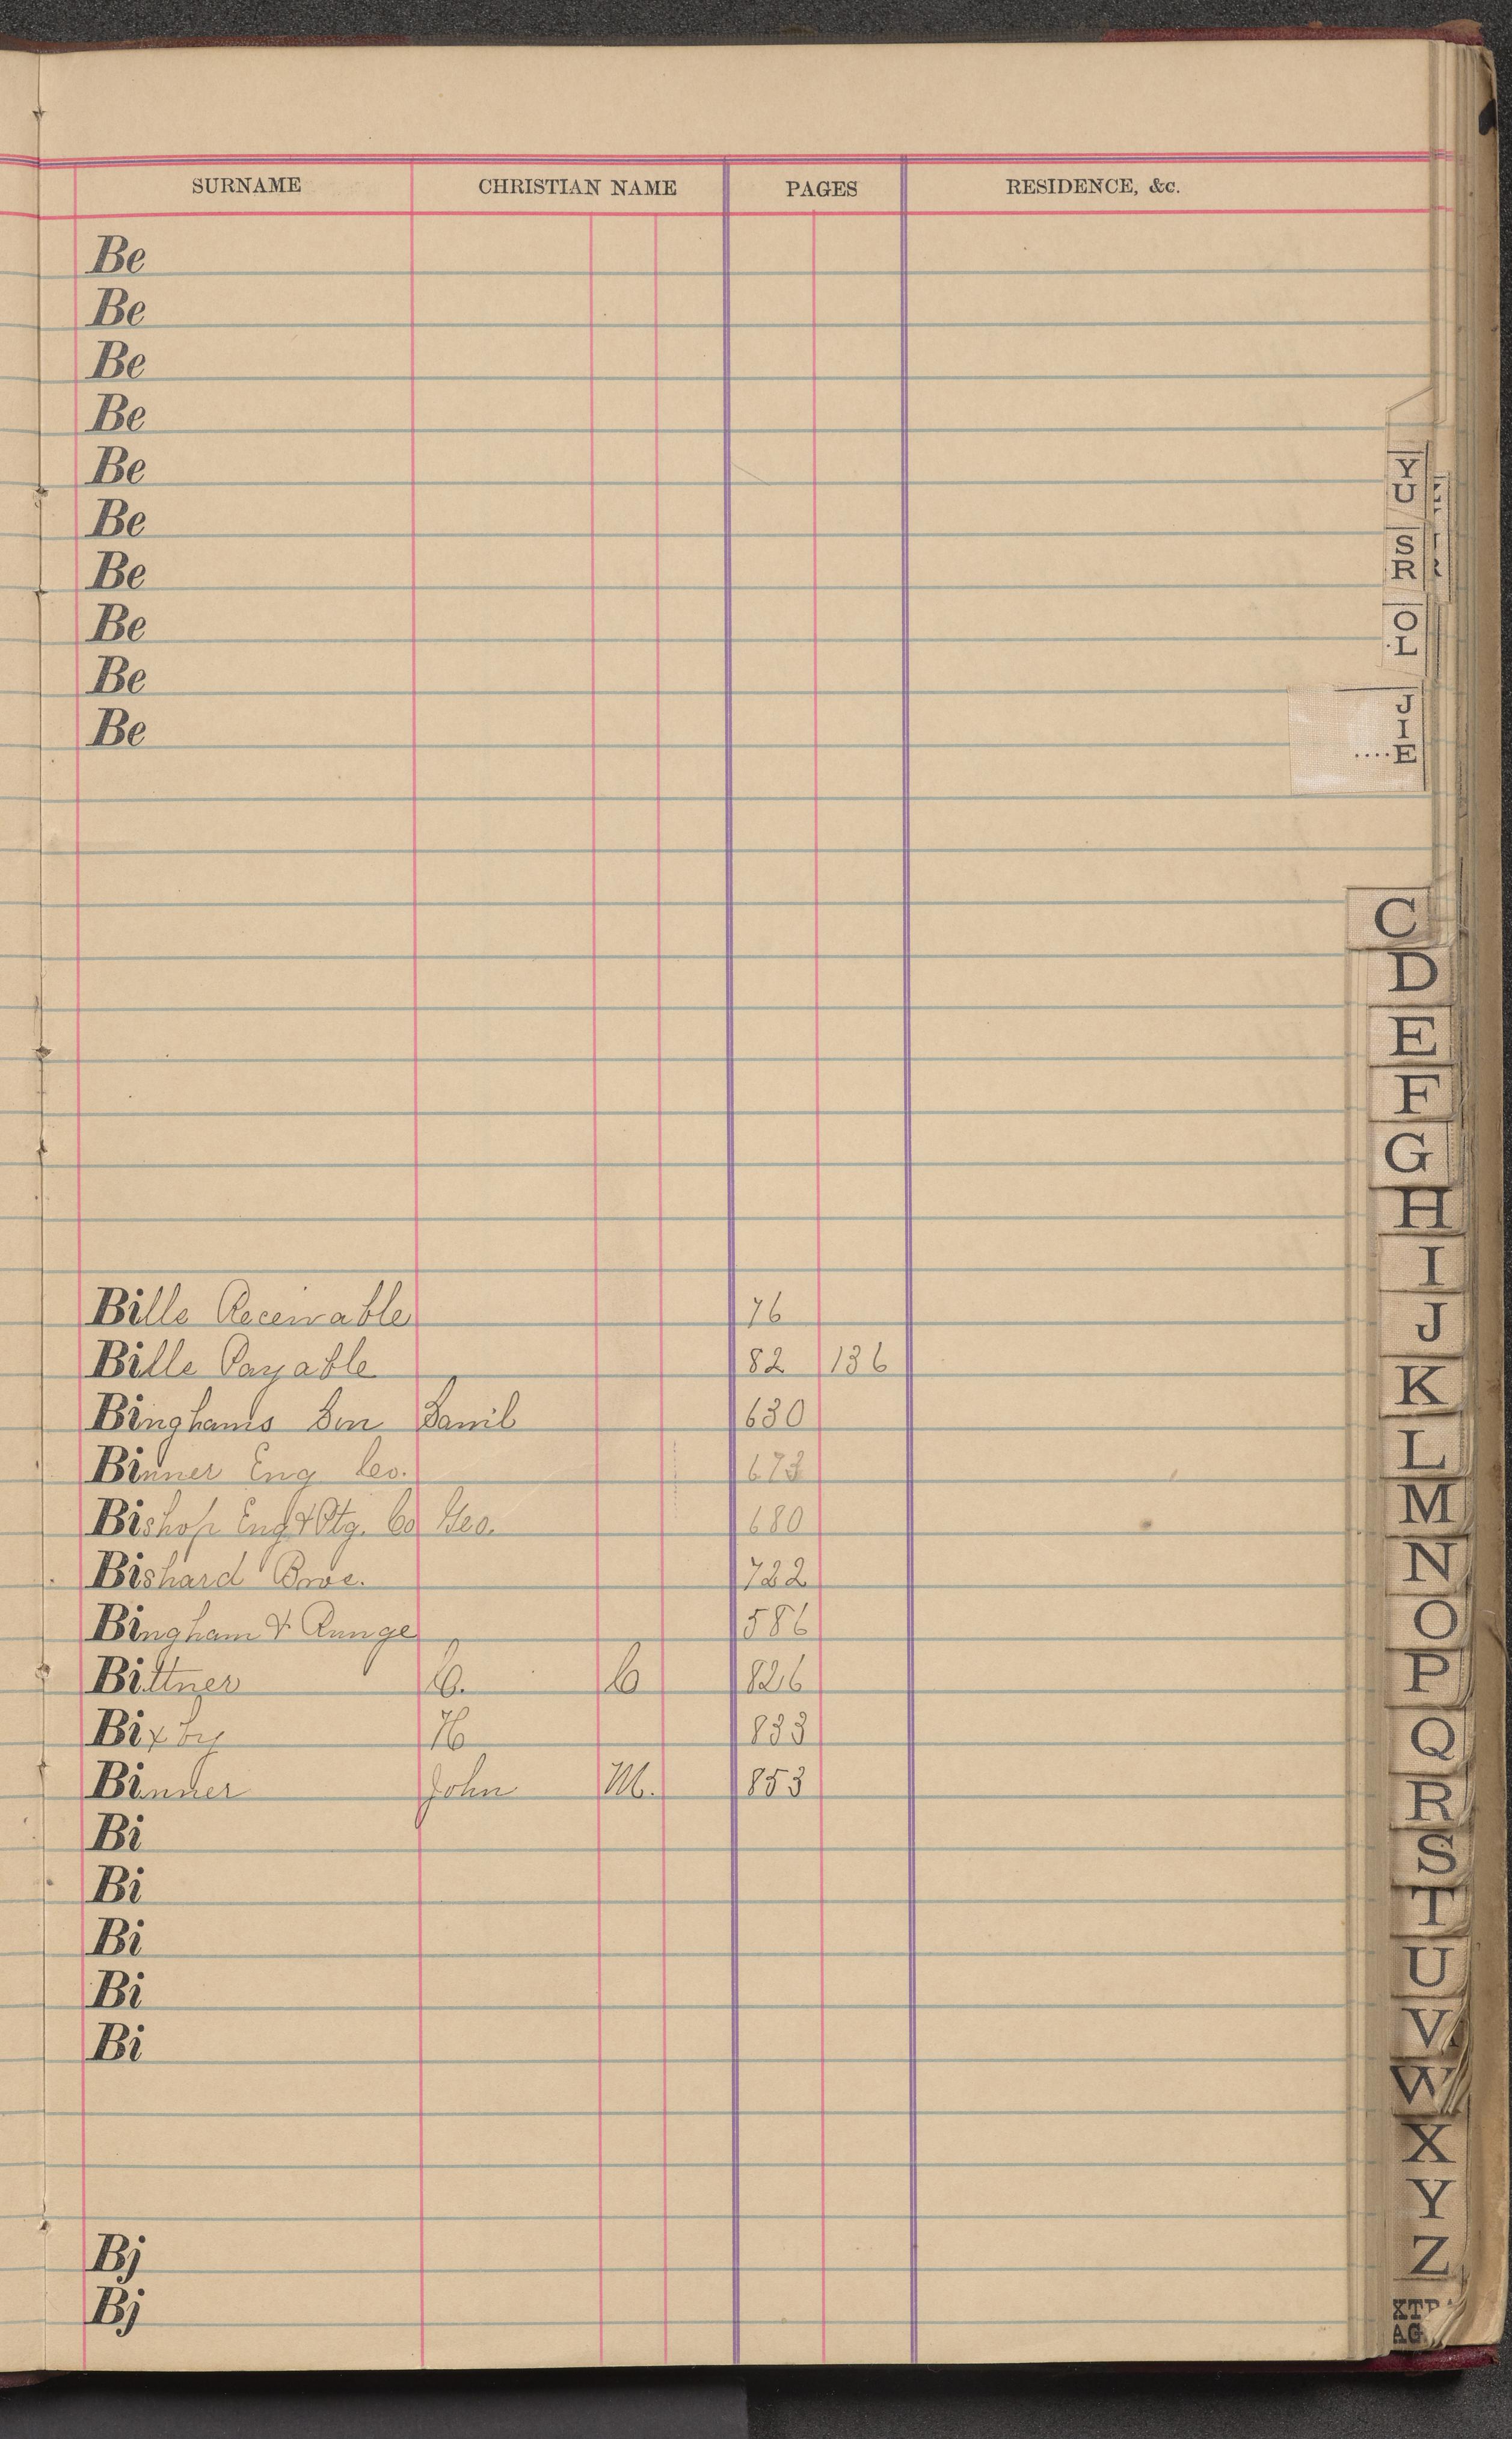 SURNAME CHRISTIAN NAME PAGES RESIDENCE, &c.
Be
Be
Be
Be
Be
Be
Be
Be
Be
Be
Bills Receivable 76
Bills Payable 82 136
Binghams Son Saml 630
Binner Eng Co. 673
Bishop Eng & Ptg. Co Geo. 680
Bishard Bros. 722
Bingham & Runge 586
Bittner C. C 826
Bixby H 833
Binner John M. 853
Bi
Bi
Bi
Bi
Bi
Bj
Bj
Y
U
S
R
O
L
J
I
....E
C
D
E
F
G
H
I
J
K
L
M
N
O
P
Q
R
S
T
U
V
W
X
Y
Z